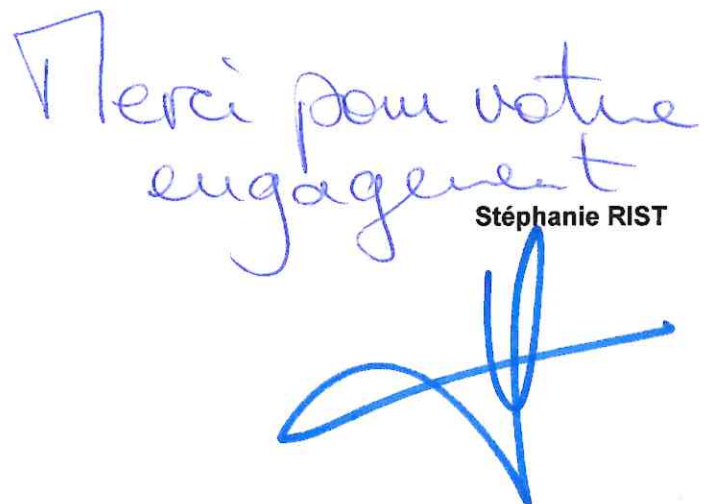 Merci pour votre
engagement
Stéphanie RIST